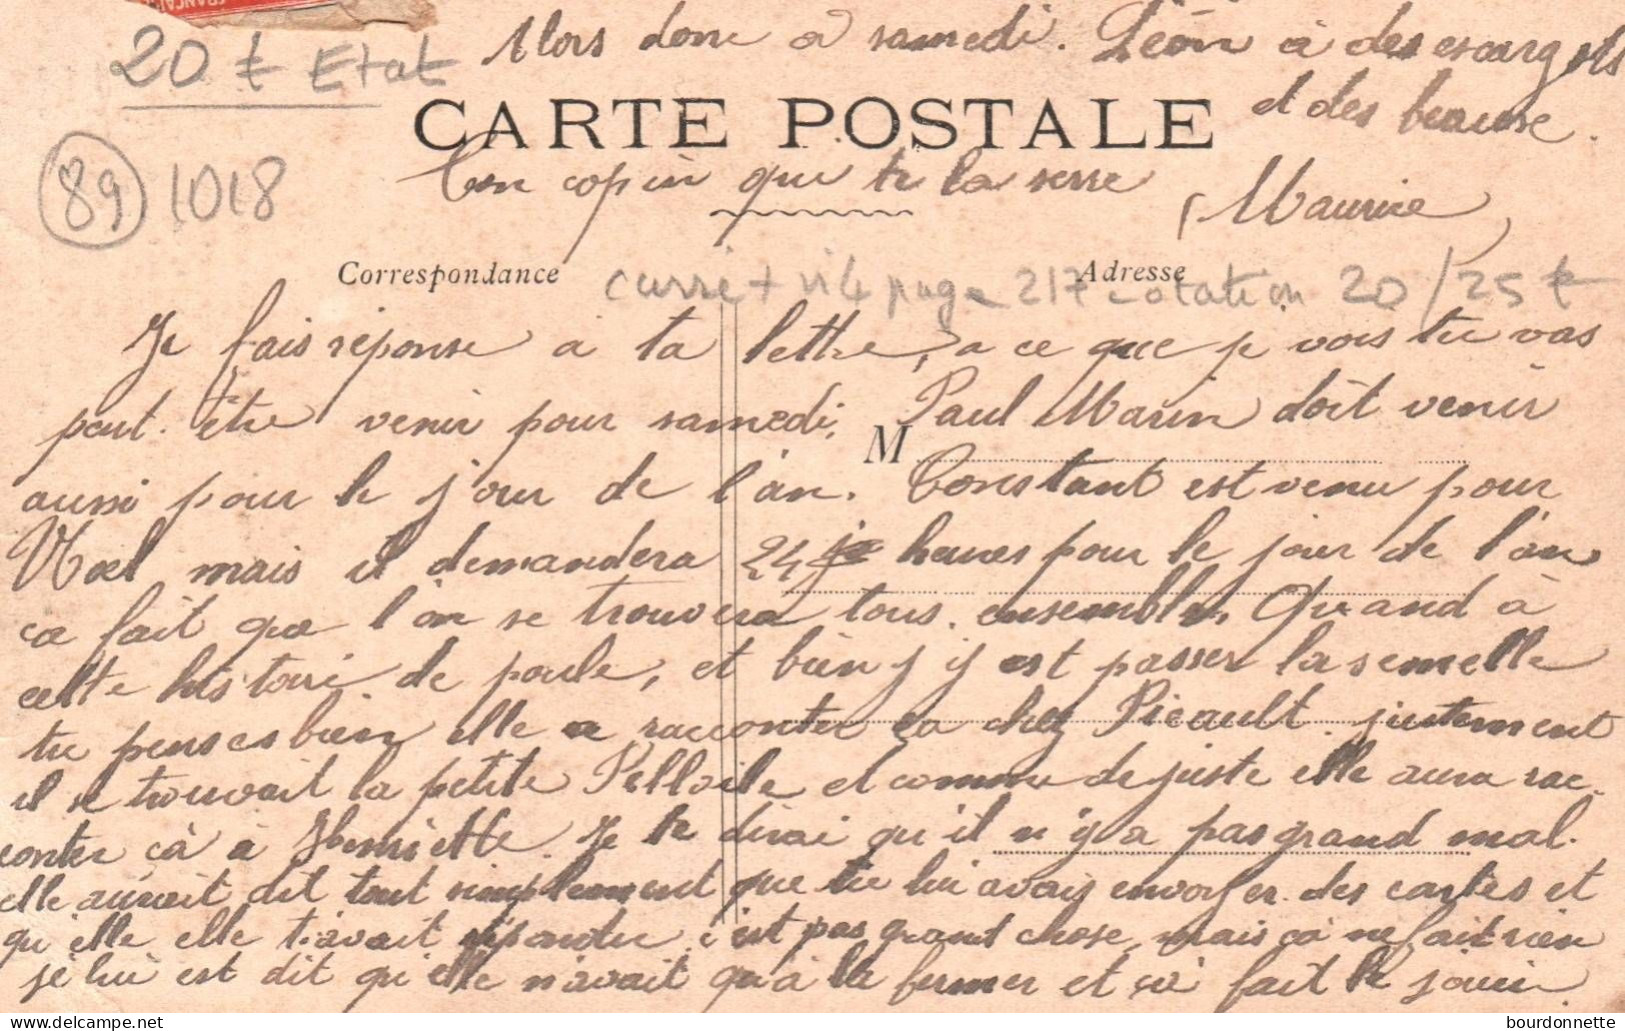 FRANÇAI
20 € Etat
Alors donc a samedi. Léon à des escargots
et des beause.
CARTE POSTALE
Ton copin que te la serre
(Maurice)
89 1018
Correspondance
Adresse
carré + vi4 page 217 cotation 20/25 €
Je fais réponse a ta lettre, a ce que je vois tu vas
peut-être venir pour samedi, Paul Marin doit venir
M
aussi pour le jour de l'an. Constant est venu pour
Noel mais il demandera 24 heures pour le jour de l'an
ca fait que l'on se trouvera tous ensemble. Quand à
cette histoire de poule, et bien j'y est passer la semelle
tu penses bien elle a raconter ça chez Picault justement
il se trouvait la petite et comme de juste elle aura rac-
conter çà à Henriette. Je te dirai qu'il n'y a pas grand mal.
elle aurait dit tout simplement que tu lui avais envoyer des cartes et
qu'elle elle t'avait répondu, c'est pas grand chose, mais ça ne fait rien
je lui est dit qu'elle n'avait qu'à la fermer et sa fait le
bourdonnette